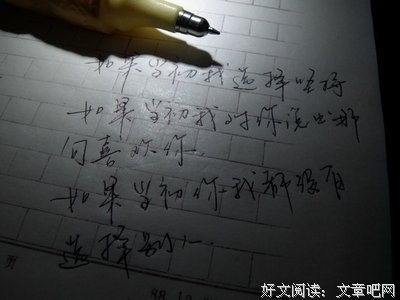 如果当初我选择坚持
如果当初我对你说出那
句喜欢你
如果当初你我都没有
选择
页
好文阅读：文章吧网